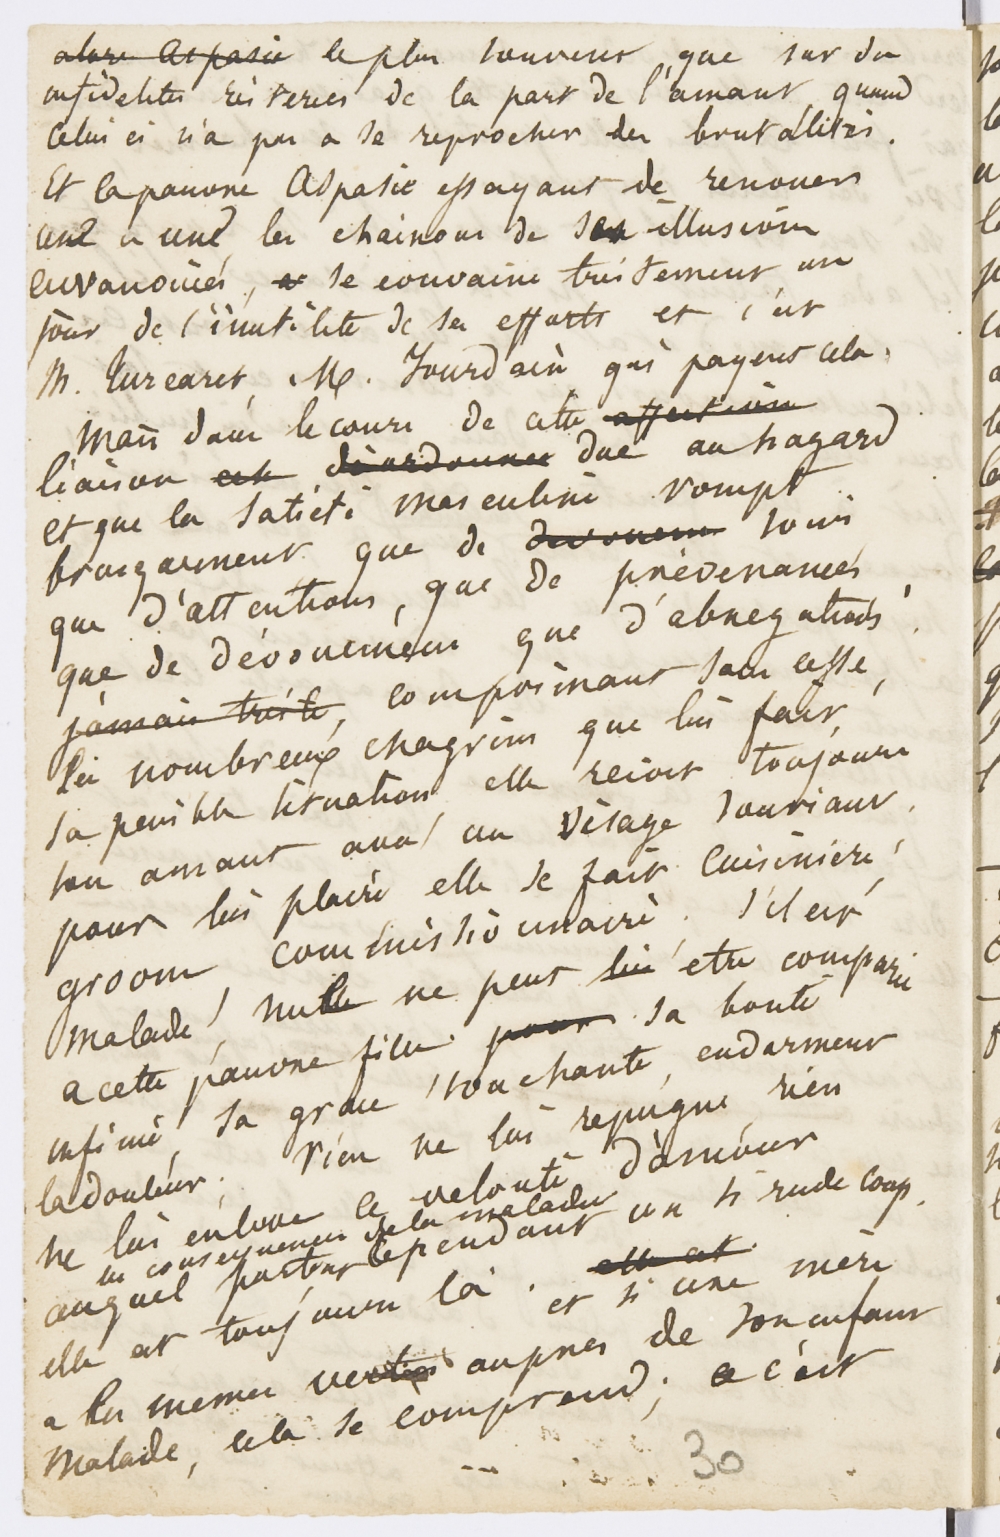 alors Aspasie le plus souvent que sur des
infidelites réiterees de la part de l'amant, quand
celui ci n'a pas a se reprocher des brutalités.
Et la pauvre Aspasie essayant de renouer
une a une les chainons de ses illusions
envanouies, et se convainc tristement un
jour de l'inutilite de ses efforts et c'est
M. Turcaret, M. Jourdain qui payent cela.
Mais dans le cours de cette affection
liaison est désordonnee due au hazard
et que la satieté masculine rompt
brusquement que de devouem soins
que d'attentions, que de prévenances
que de dévouements que d'abnegations!
jamais triste, comprimant sans cesse,
les nombreux chagrins que lui fait
sa penible situation elle recoit toujours
son amant avec un visage souriant.
pour lui plaire elle se fait cuisiniere,
groom, commissionnaire. s'il est
malade, nulle ne peut lui etre comparée
a cette pauvre fille. pour sa bonté
infinie, sa grace touchante, endorment
la douleur; rien ne lui repugne rien
ne lui enleve ce velouté d'amour
les consequences de la maladie
auquel portent cependant un si rude coup.
elle est toujours là. elle est
et si une mère
a les memes vertus aupres de son enfant
malade, cela se comprend; c'est
30